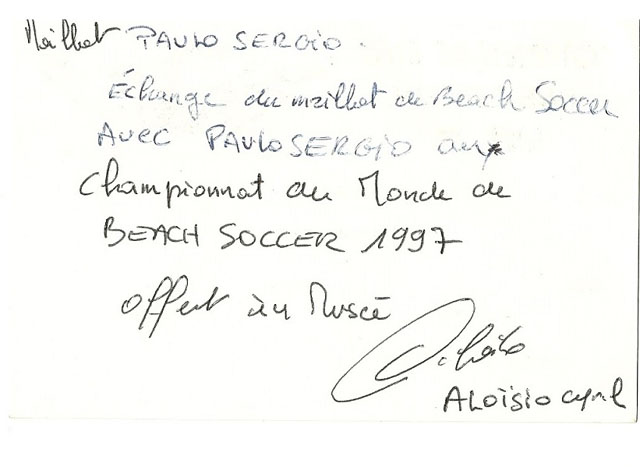 Maillot PAULO SERGIO.
Échange du maillot de Beach Soccer
Avec PAULO SERGIO aux
Championnat du Monde de
BEACH SOCCER 1997
offert au Musée
ALOÏSIO cyril